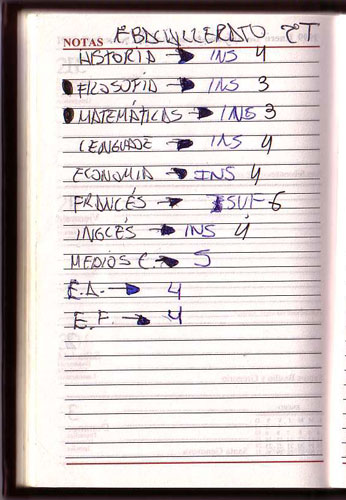 NOTAS 1º BACHILLERATO 2T
HISTORIA → INS 4
FILOSOFIA → INS 3
MATEMÁTICAS → INS 3
LENGUAGE → INS 4
ECONOMIA → INS 4
FRANCÉS → SUF 6
INGLÉS → INS 4
MEDIOS C. → 5
E.A. → 4
E.F. → 4